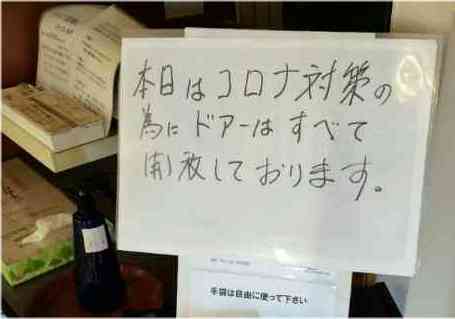 本日はコロナ対策の
為に ドアーは すべて
開放しております。
手袋は自由に使って下さい